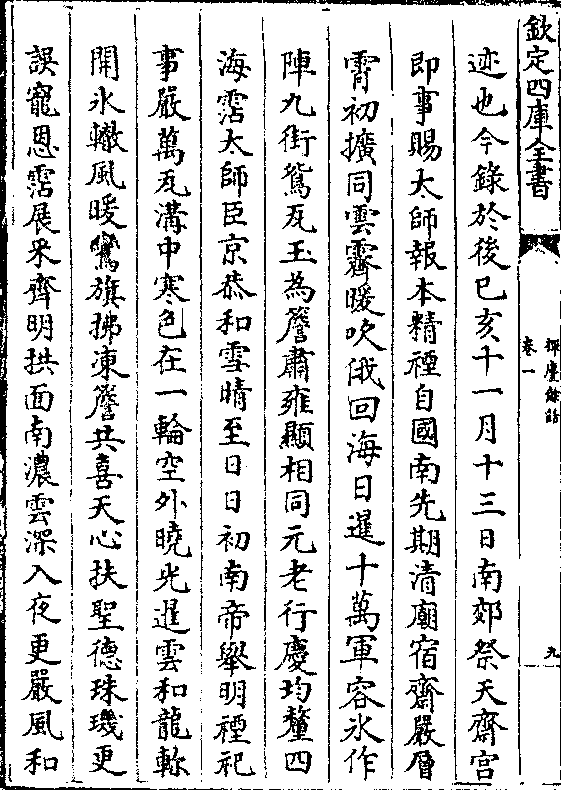 欽定四庫全書
揮麈餘話
卷一
九
迹也今錄於後巳亥十一月十三日南郊祭天齋宮
即事賜太師報本精禋自國南先期清廟宿齋嚴層
霄初擴同雲霽暖吹俄回海日暹十萬軍容氷作
陣九街鴛瓦玉為簷肅雍顯相同元老行慶均釐四
海霑太師臣京恭和雪晴至日日初南帝舉明禋祀
事嚴萬瓦溝中寒色在一輪空外曉光暹雲和龍軫
開氷轍風暖鸞旗拂凍簷共喜天心扶聖德珠璣更
誤寵恩霑展采齊明拱面南濃雲深入夜更嚴風和